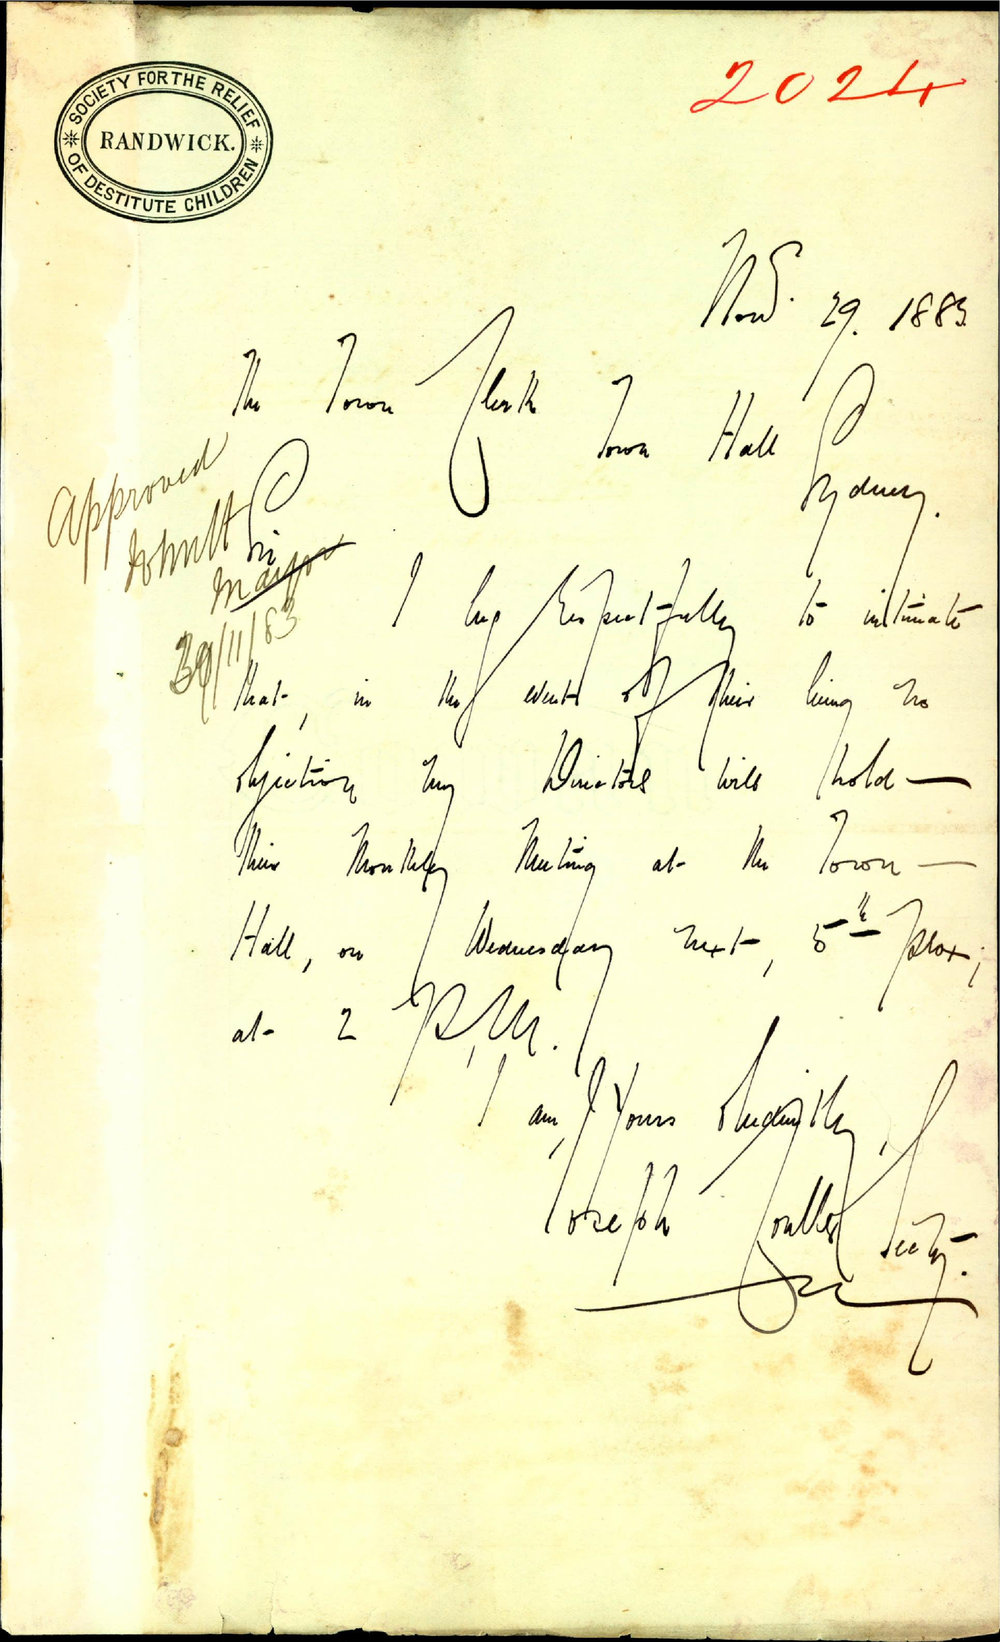 SOCIETY FOR THE RELIEF
OF DESTITUTE CHILDREN
RANDWICK.
2024
Novr. 29. 1883.
The Town Clerk
Town Hall
Sydney.
Approved
John
Mayor
30/11/83
I beg respectfully to intimate
that, in the event of their being no
objection my Directors will hold—
their Monthly Meeting at the Town—
Hall, on Wednesday next, 5th prox;
at 2 P.M.
I am, Yours obediently,
Joseph Coulter Secty.